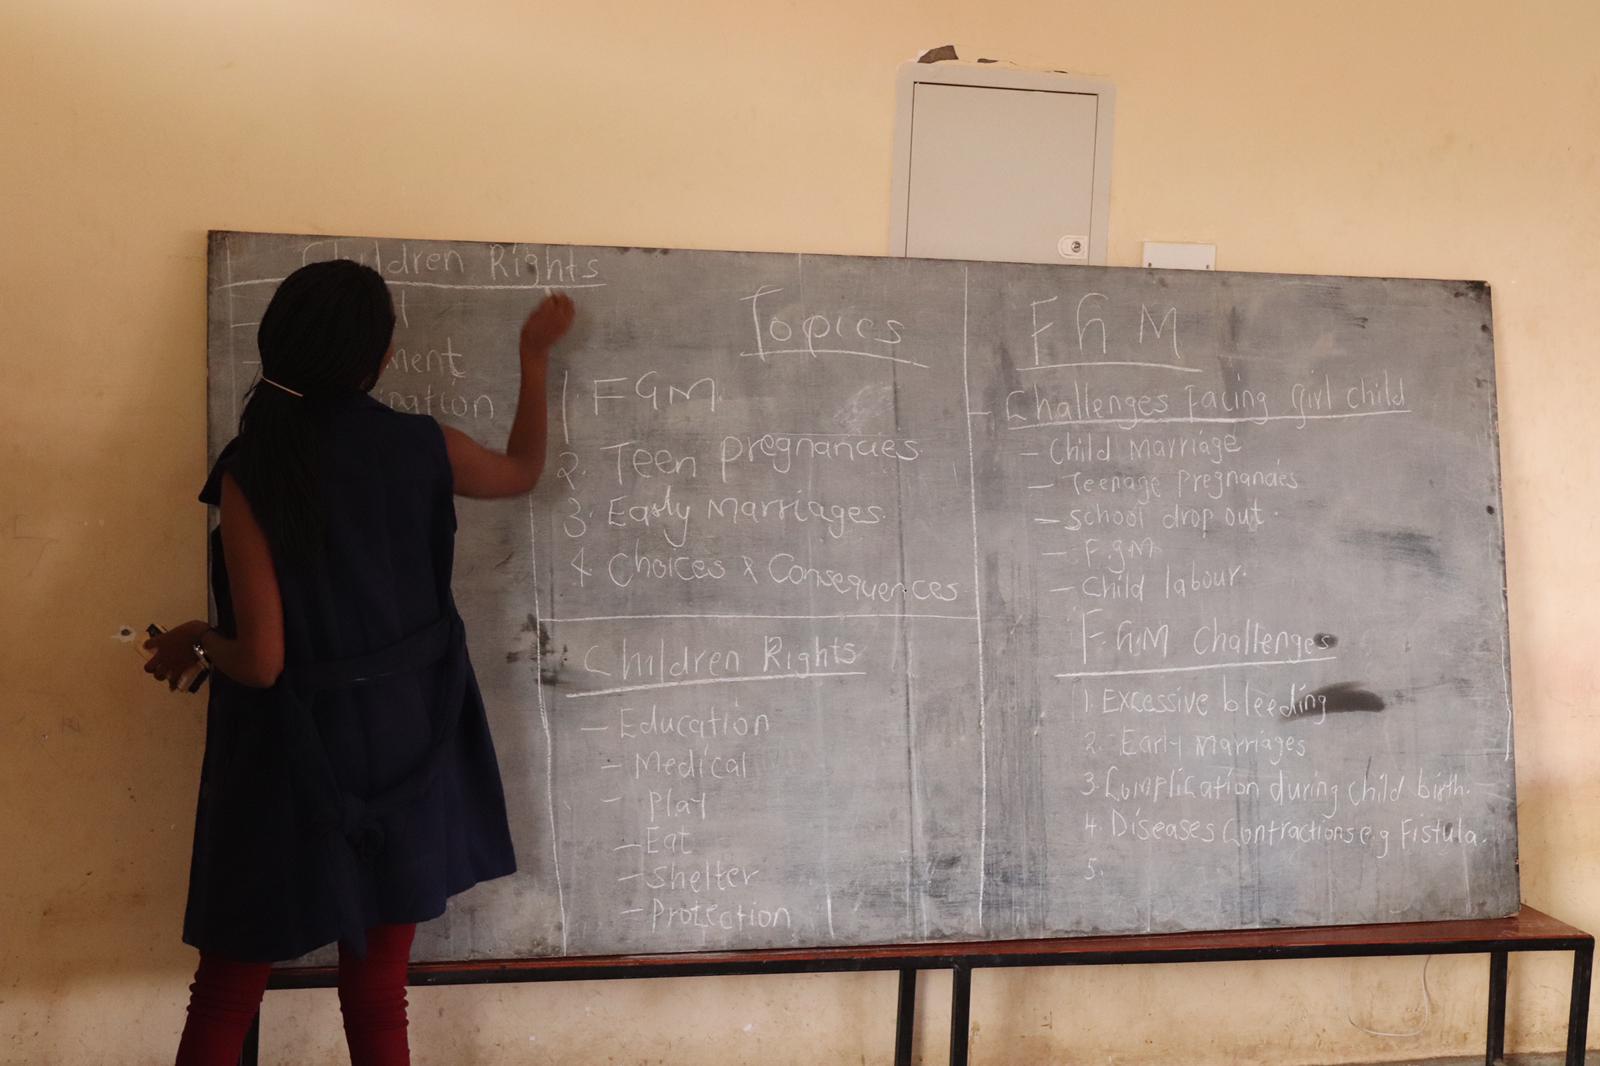 Children Rights
Topics
1. FGM.
2. Teen pregnancies.
3. Early Marriages.
4 Choices & Consequences
Children Rights
- Education
- Medical
- Play
- Eat
- Shelter
- Protection
FGM
- Challenges Facing Girl child
- Child Marriage
- Teenage Pregnancies
- School drop out.
- F.g.M
- Child labour.
FGM Challenges
1. Excessive bleeding
2. Early Marriages
3. Complication during child birth.
4. Diseases Contractions e.g Fistula.
5.